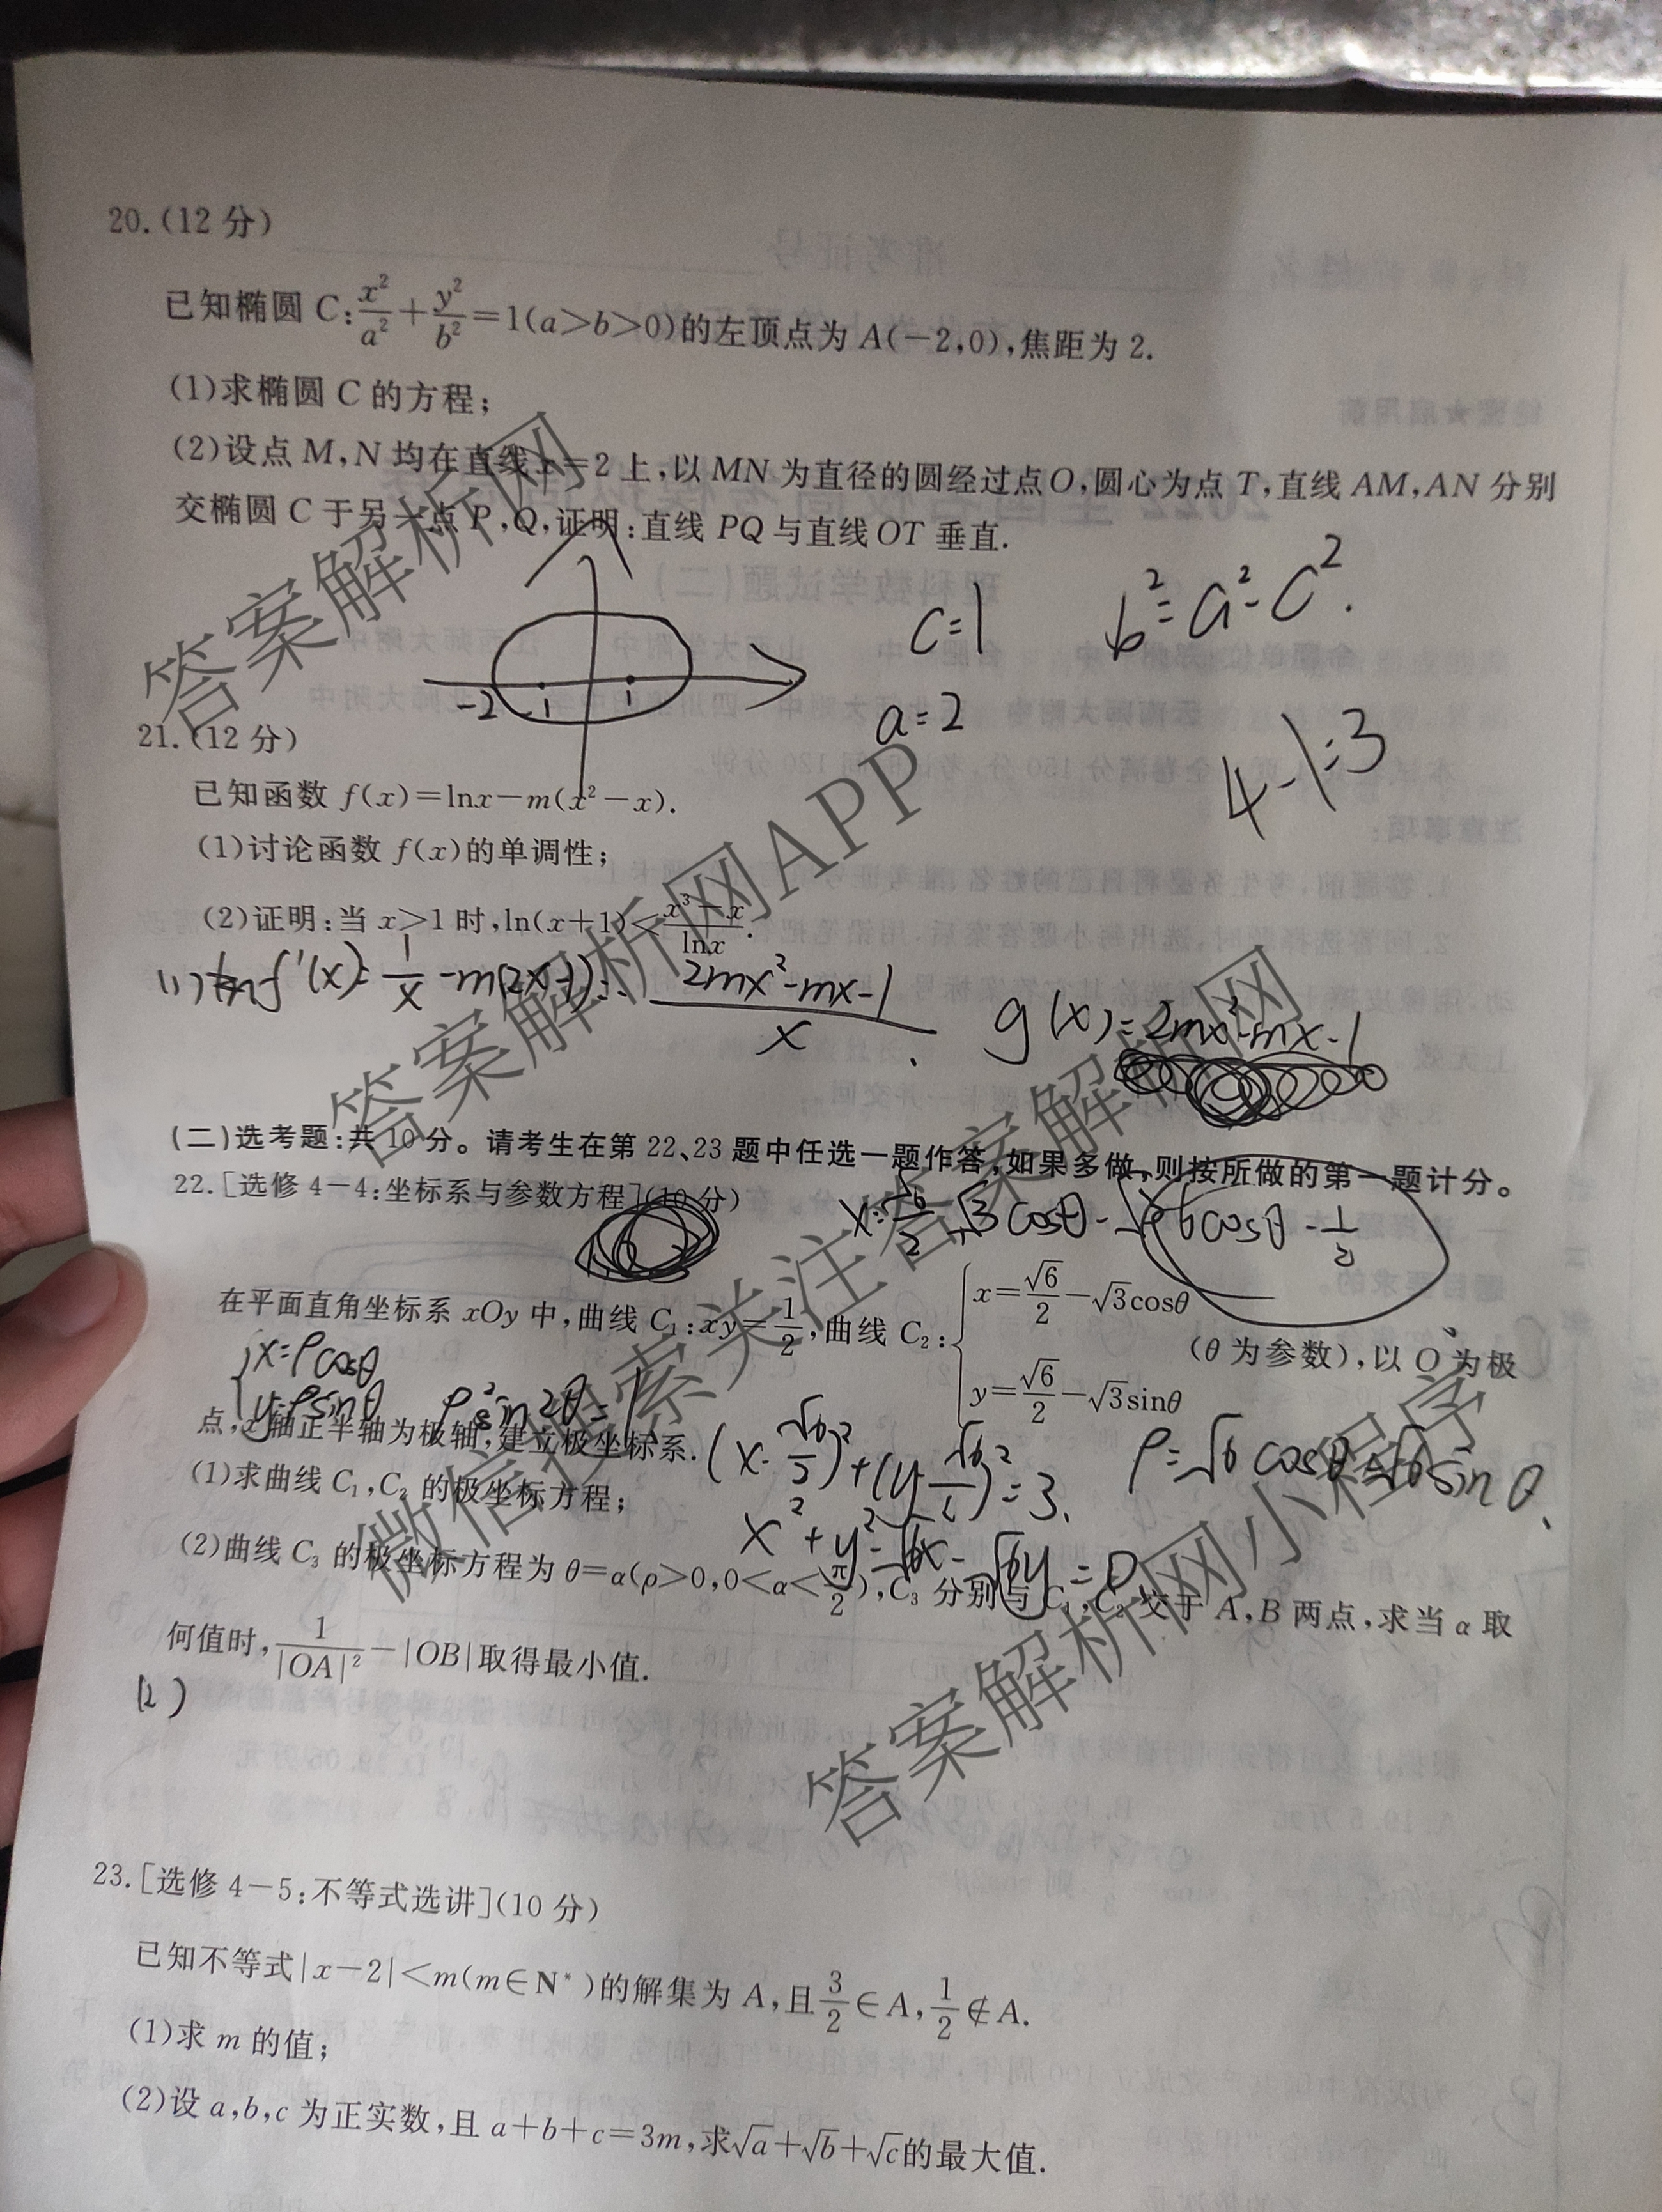 20.(12 分)
已知椭圆 C:x²/a²+y²/b²=1(a>b>0)的左顶点为 A(−2,0),焦距为 2.
(1)求椭圆 C 的方程;
(2)设点 M,N 均在直线 x=2 上,以 MN 为直径的圆经过点O,圆心为点 T,直线 AM,AN 分别
交椭圆 C 于另一点 P,Q,证明:直线 PQ 与直线 OT 垂直.
c=1
b²=a²-c².
-2 -1 1
a=2
4-1=3
21.(12 分)
已知函数 f(x)=lnx−m(x²−x).
(1)讨论函数 f(x)的单调性;
(2)证明:当 x>1 时,ln(x+1)<(x³−x)/lnx.
f'(x)=1/x-m(2x-1)=-(2mx²-mx-1)/x.
g(x)=2mx²-mx-1
(二)选考题:共 10 分。请考生在第 22、23 题中任选一题作答,如果多做,则按所做的第一题计分。
22.[选修 4−4:坐标系与参数方程](10 分)
在平面直角坐标系 xOy 中,曲线 C₁:xy=1/2,曲线 C₂:{x=√6/2−√3cosθ
y=√6/2−√3sinθ
(θ 为参数),以 O 为极
{x=ρcosθ
y=ρsinθ
ρ²sin2θ=1
点,x 轴正半轴为极轴,建立极坐标系.
(x-√6/2)²+(y-√6/2)²=3.
(1)求曲线 C₁,C₂ 的极坐标方程;
x²+y²-√6x-√6y=0
(2)曲线 C₃ 的极坐标方程为 θ=α(ρ>0,0<α<π/2),C₃ 分别与 C₁,C₂ 交于 A,B 两点,求当 α 取
何值时,1/|OA|²−|OB|取得最小值.
(2)
23.[选修 4−5:不等式选讲](10 分)
已知不等式|x−2|<m(m∈N*)的解集为 A,且3/2∈A,1/2∉A.
(1)求 m 的值;
(2)设 a,b,c 为正实数,且 a+b+c=3m,求√a+√b+√c的最大值.
答案解析网
答案解析网APP
微信搜索关注答案解析网
答案解析网小程序